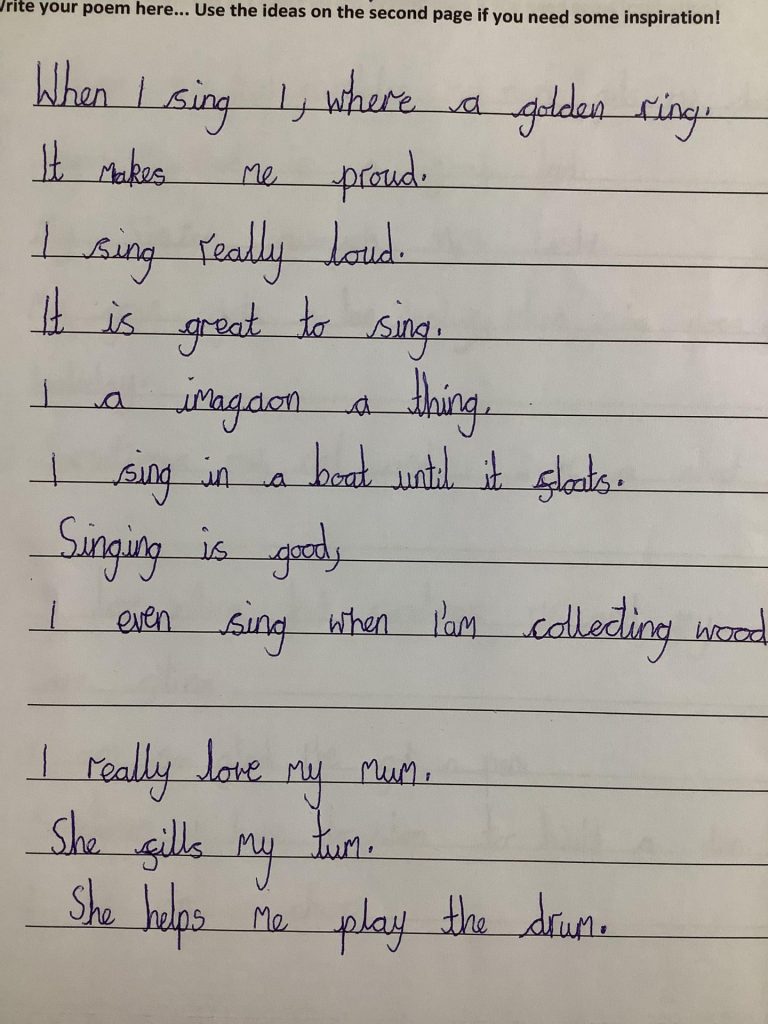 Write your poem here... Use the ideas on the second page if you need some inspiration!
When I sing I, where a golden ring.
It makes me proud.
I sing really loud.
It is great to sing.
I a imagaon a thing.
I sing in a boat until it floats.
Singing is good,
I even sing when I'am collecting wood
I really love my mum.
She fills my tum.
She helps me play the drum.